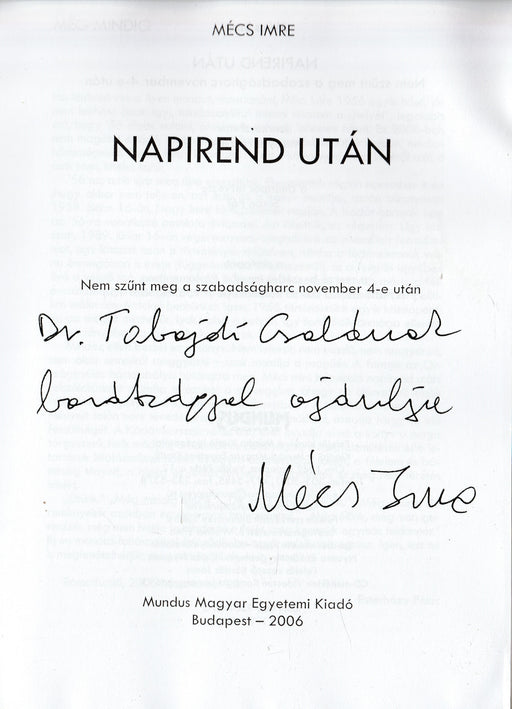 MÉCS IMRE
NAPIREND UTÁN
Nem szűnt meg a szabadságharc november 4-e után
Dr. Tabajdi Csabának
barátsággal ajánlja
Mécs Imre
Mundus Magyar Egyetemi Kiadó
Budapest – 2006